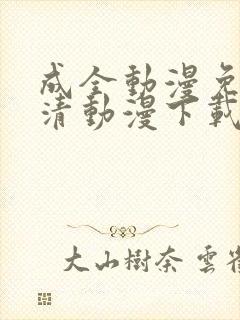 成全動漫免
清動漫下載
大山樹奈 雲雀